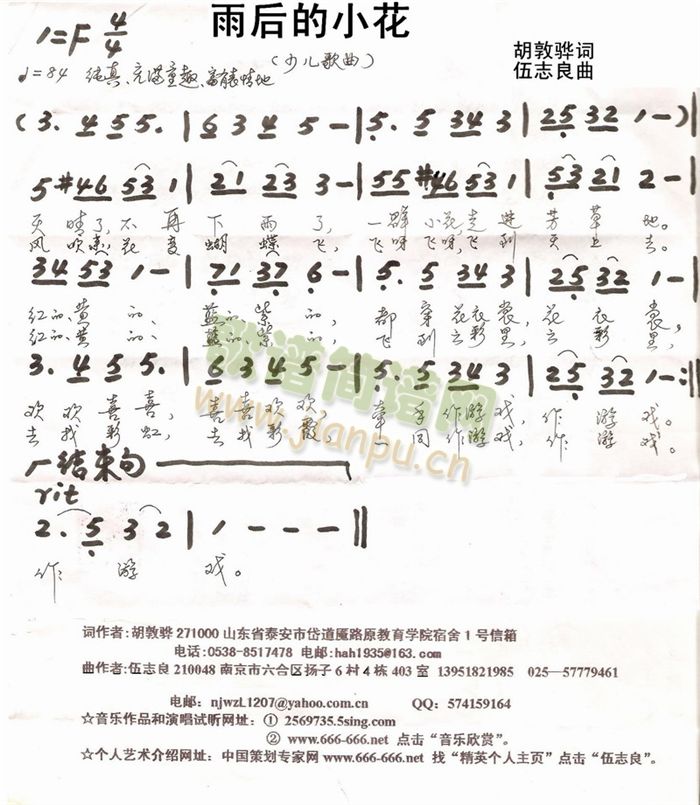 雨后的小花
1=F 4/4
(少儿歌曲)
胡敦骅词
伍志良曲
♩=84 纯真、充满童趣、富有表情地
(3. 4 5 5. | 6 3 4 5 - | 5. 5 34 3 | 25 32 1 -) |
5 #46 53 1 | 21 23 3 - | 55 #46 53 1 | 53 21 2 - |
天晴了,不再下雨了,一群小花走进芳草地。
风吹来,花变蝴蝶飞,飞呀飞呀,飞到天上去。
34 53 1 - | 71 37 6 - | 5. 5 34 3 | 25 32 1 - |
红的、黄的、蓝的、紫的,都穿花衣裳,花衣裳,
红的、黄的、蓝的、紫的,飞到云彩里,云彩里,
3. 4 5 5. | 6 3 4 5 - | 5. 5 34 3 | 25 32 1 - :||
欢欢喜喜,喜喜欢欢,牵手作游戏,作游戏。
去找彩虹,去找彩霞,一同作游戏,作游戏。
结束句
rit
2. 5 3 2 | 1 - - - ||
作游戏。
歌谱简谱网
www.jianpu.cn
词作者:胡敦骅 271000 山东省泰安市岱道庵路原教育学院宿舍1号信箱
电话:0538-8517478 电邮:hah1935@163.com
曲作者:伍志良 210048 南京市六合区扬子6村4栋403室 13951821985 025—57779461
电邮: njwzL1207@yahoo.com.cn QQ: 574159164
☆音乐作品和演唱试听网址: ① 2569735.5sing.com
② www.666-666.net 点击“音乐欣赏”。
☆个人艺术介绍网址: 中国策划专家网 www.666-666.net 找“精英个人主页”点击“伍志良”。